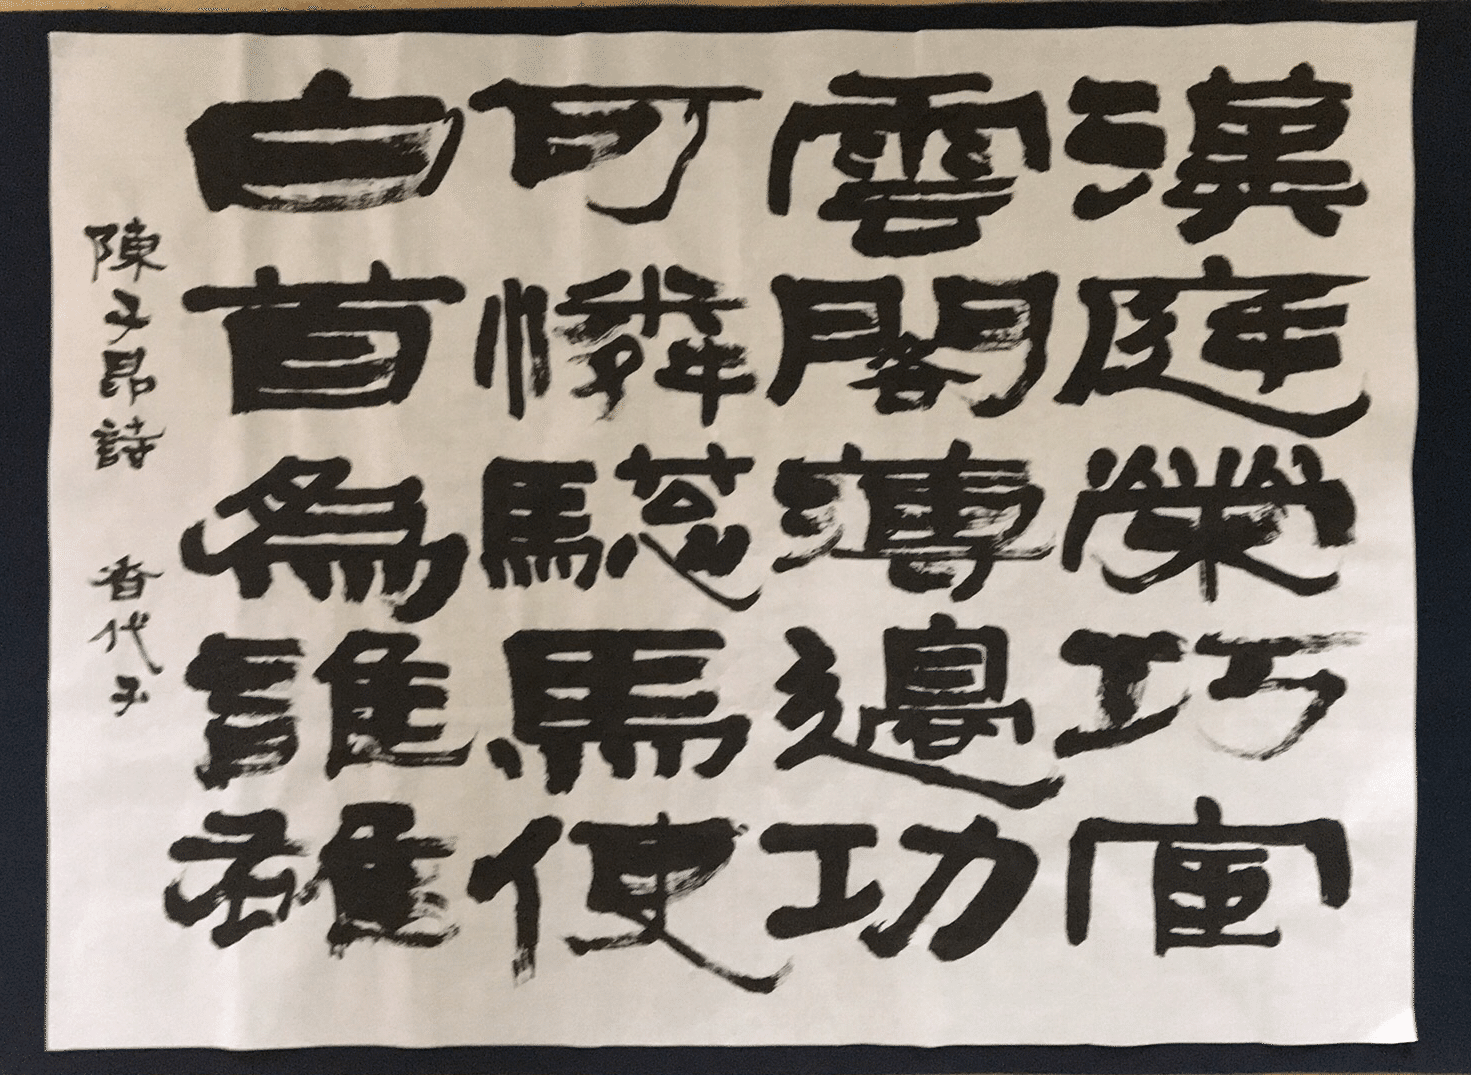 漢庭榮巧宦
雲閣薄邊功
可憐驄馬使
白首為誰雄
陳子昂詩 香代子